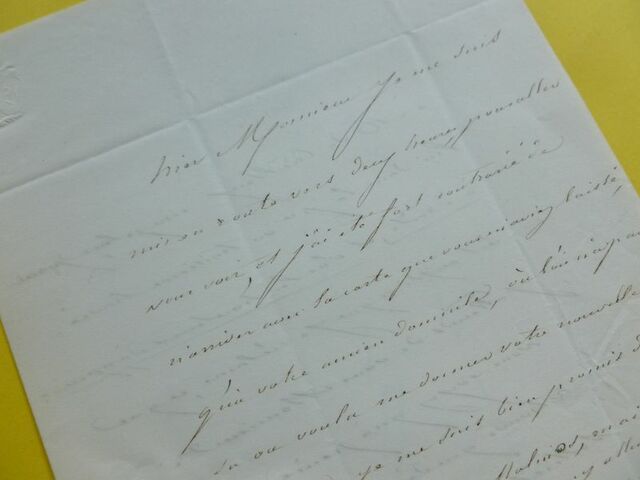 hier Monsieur je me suis
mis en route vers deux heures, pour aller
vous voir, et j'ai été fort contrariée de
n'arriver avec la carte que vous m'aviez laissé,
qu'à votre ancien domicile, où l'on n'a pas
su ou voulu me donner votre nouvelle
je me suis bien promis d